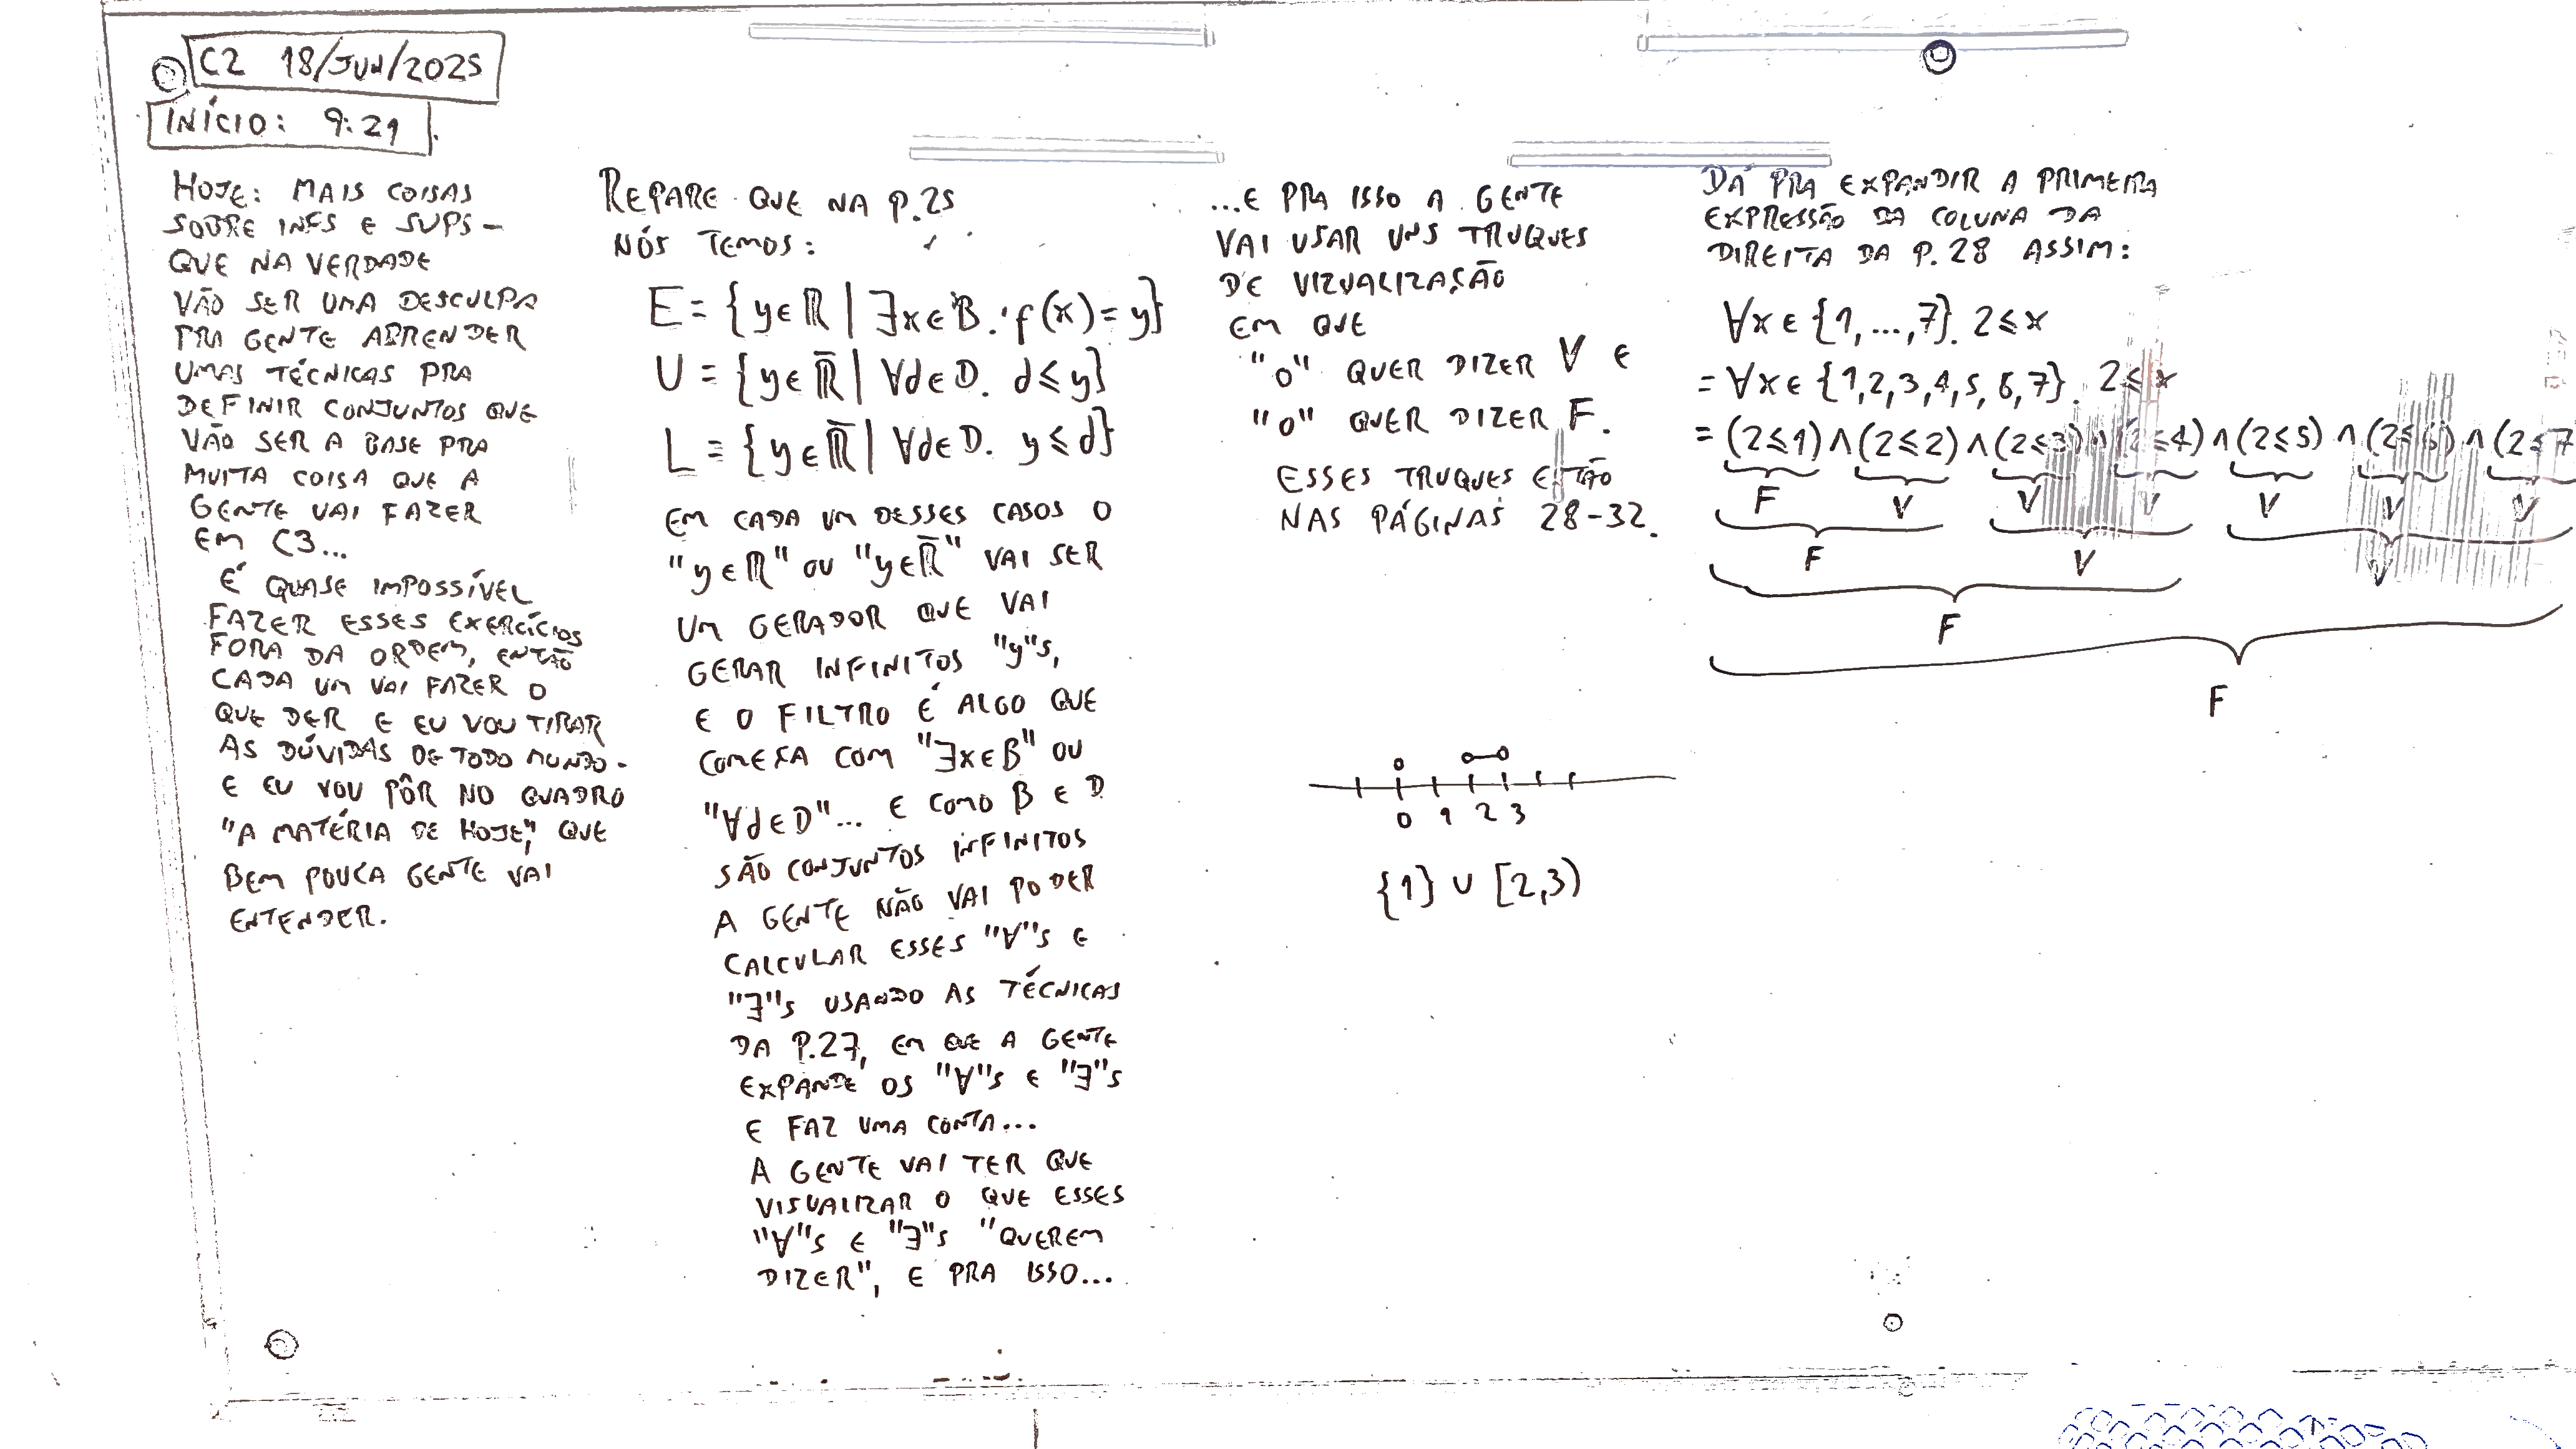 C2 18/JUN/2025
INÍCIO: 9:21
HOJE: MAIS COISAS
SOBRE INFS E SUPS –
QUE NA VERDADE
VÃO SER UMA DESCULPA
PRA GENTE APRENDER
UMAS TÉCNICAS PRA
DEFINIR CONJUNTOS QUE
VÃO SER A BASE PRA
MUITA COISA QUE A
GENTE VAI FAZER
EM C3...
É QUASE IMPOSSÍVEL
FAZER ESSES EXERCÍCIOS
FORA DA ORDEM, ENTÃO
CADA UM VAI FAZER O
QUE DER E EU VOU TIRAR
AS DÚVIDAS DE TODO MUNDO -
E EU VOU PÔR NO QUADRO
"A MATÉRIA DE HOJE", QUE
BEM POUCA GENTE VAI
ENTENDER.
REPARE QUE NA P.25
NÓS TEMOS:
E = {y∈ℝ | ∃x∈B. f(x)=y}
U = {y∈ℝ̄ | ∀d∈D. d≤y}
L = {y∈ℝ̄ | ∀d∈D. y≤d}
EM CADA UM DESSES CASOS O
"y∈ℝ" OU "y∈ℝ̄" VAI SER
UM GERADOR QUE VAI
GERAR INFINITOS "y"s,
E O FILTRO É ALGO QUE
COMEÇA COM "∃x∈B" OU
"∀d∈D"... E COMO B E D
SÃO CONJUNTOS INFINITOS
A GENTE NÃO VAI PODER
CALCULAR ESSES "∀"s E
"∃"s USANDO AS TÉCNICAS
DA P.27, EM QUE A GENTE
EXPANDE OS "∀"s E "∃"s
E FAZ UMA CONTA...
A GENTE VAI TER QUE
VISUALIZAR O QUE ESSES
"∀"s E "∃"s "QUEREM
DIZER", E PRA ISSO...
...E PRA ISSO A GENTE
VAI USAR UNS TRUQUES
DE VIZUALIZAÇÃO
EM QUE
"o" QUER DIZER V E
"o" QUER DIZER F.
ESSES TRUQUES ESTÃO
NAS PÁGINAS 28-32.
0 1 2 3
{1} ∪ [2,3)
DÁ PRA EXPANDIR A PRIMEIRA
EXPRESSÃO DA COLUNA DA
DIREITA DA P.28 ASSIM:
∀x∈{1,...,7}. 2≤x
= ∀x∈{1,2,3,4,5,6,7}. 2≤x
= (2≤1)∧(2≤2)∧(2≤3)∧(2≤4)∧(2≤5)∧(2≤6)∧(2≤7
F V V V V V V
F V V
F
F